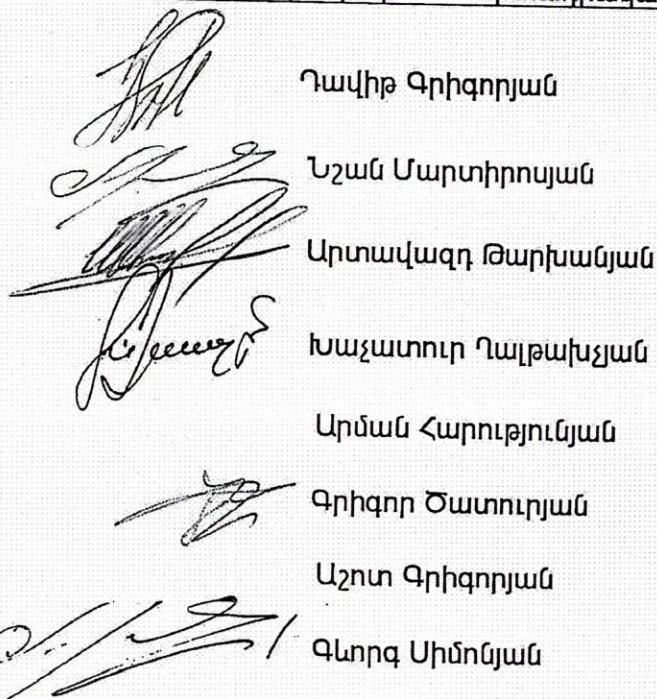 Դավիթ Գրիգորյան
Նշան Մարտիրոսյան
Արտավազդ Թարխանյան
Խաչատուր Ղալթախչյան
Արման Հարությունյան
Գրիգոր Ծատուրյան
Աշոտ Գրիգորյան
Գևորգ Սիմոնյան